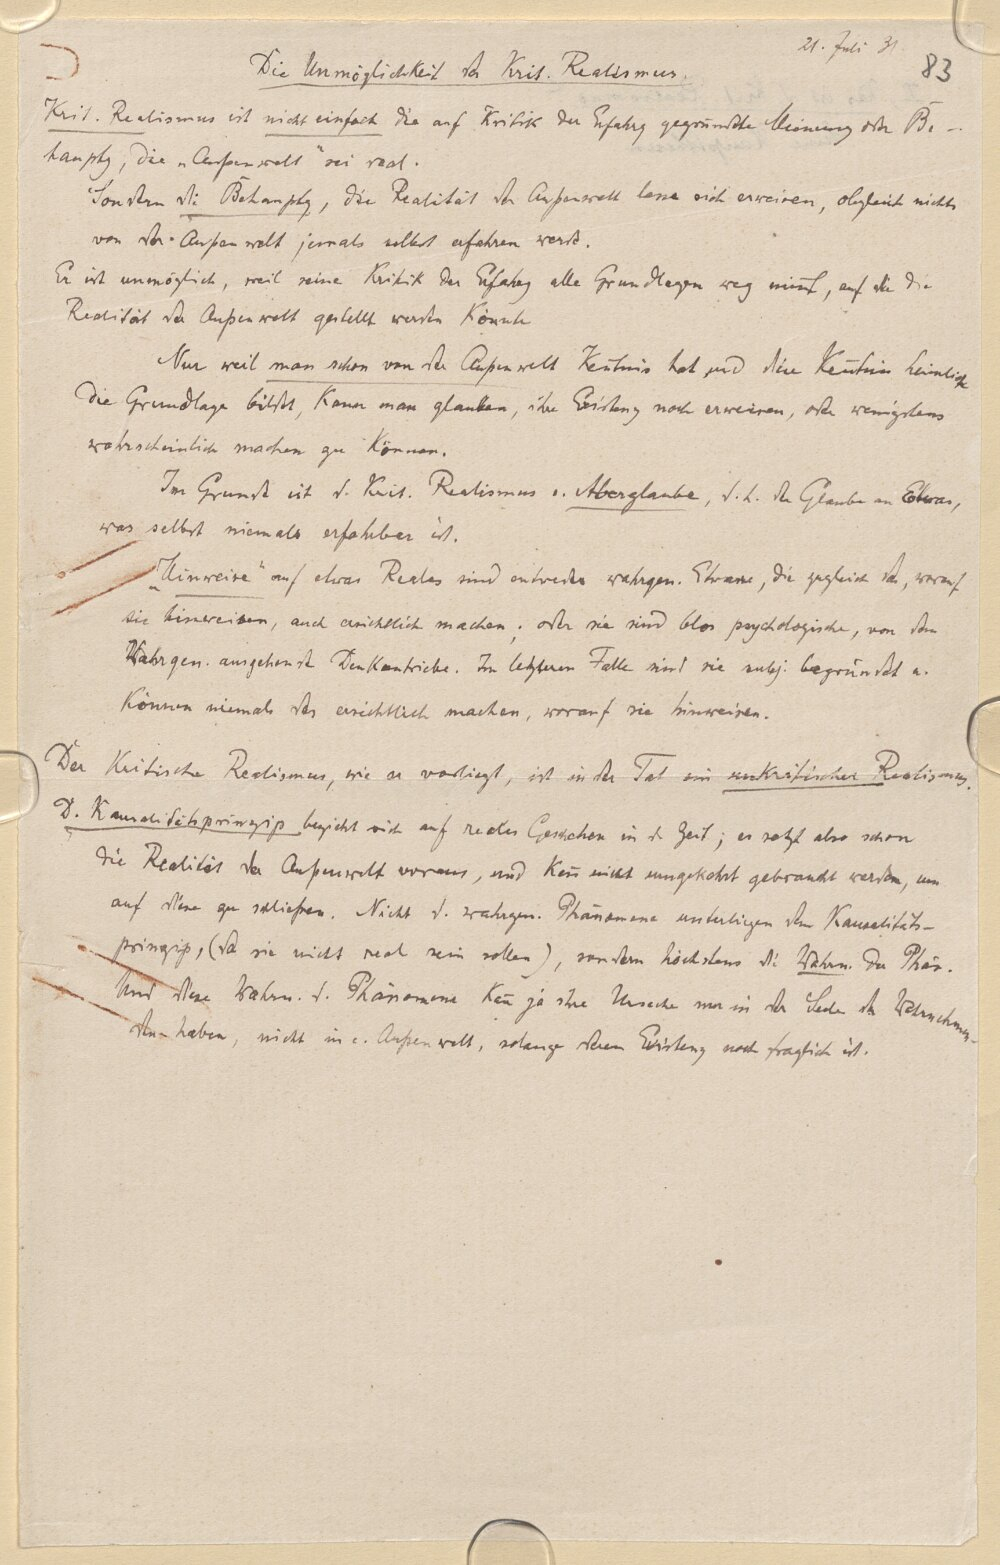 21. Juli 31.
83
Die Unmöglichkeit der Krit. Realismus.
Krit. Realismus ist nicht einfach die auf Kritik der Erfahrg gegründete Meinung oder Be-
hauptg, die „Außenwelt" sei real.
Sondern die Behauptg, die Realität der Außenwelt lasse sich erweisen, obgleich nichts
von der Außenwelt jemals selbst erfahren werde.
Er ist unmöglich, weil seine Kritik der Erfahrg alle Grundlagen weg nimt, auf die die
Realität der Außenwelt gestellt werden könnte
Nur weil man schon von der Außenwelt Kentnis hat und diese Kentnis heimlich
die Grundlage bildet, kann man glauben, ihre Existenz noch erweisen, oder wenigstens
wahrscheinlich machen zu können.
Im Grunde ist d. Krit. Realismus e. Aberglaube, d. h. der Glaube an Etwas,
was selbst niemals erfahrbar ist.
„Hinweise" auf etwas Reales sind entweder wahrgen. Etwasse, die zugleich das, worauf
sie hinweisen, auch ersichtlich machen; oder sie sind blos psychologische, von dem
Wahrgen. ausgehende Denkantriebe. Im letzteren Falle sind sie subj. begründet u.
können niemals das ersichtlich machen, worauf sie hinweisen.
Der Kritische Realismus, wie er vorliegt, ist in der Tat ein unkritischer Realismus.
D. Kausalitätsprinzip bezieht sich auf reales Geschehen in d. Zeit; es setzt also schon
die Realität der Außenwelt voraus, und kan nicht umgekehrt gebraucht werden, um
auf diese zu schließen. Nicht d. wahrgen. Phänomene unterliegen dem Kausalitäts-
prinzip, (da sie nicht real sein sollen), sondern höchstens die Wahrn. der Phän.
Und diese Wahrn. d. Phänomene kan ja ihre Ursache nur in der Seele des Wahrnehmen-
den haben, nicht in e. Außenwelt, solange deren Existenz noch fraglich ist.